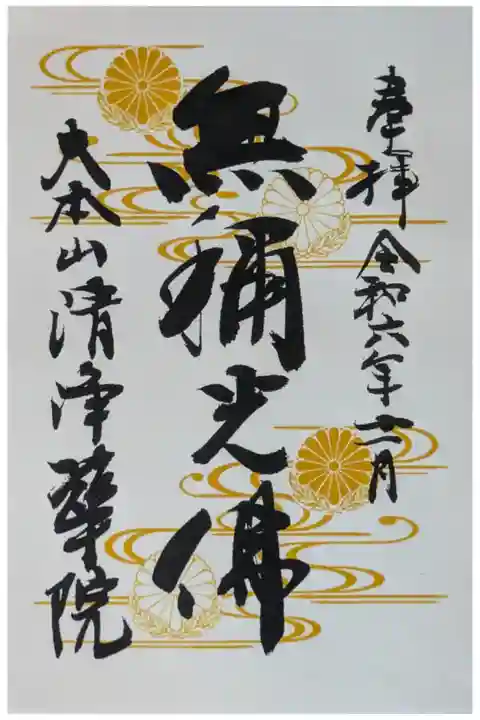 奉拝　令和六年十一月
無稱光佛
大本山清浄華院